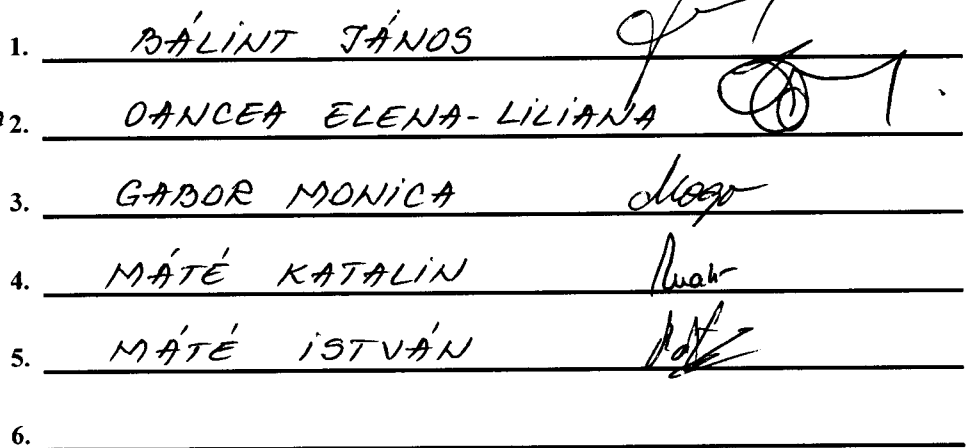 1. BÁLINT JÁNOS
2. OANCEA ELENA-LILIANA
3. GABOR MONICA
4. MÁTÉ KATALIN
5. MÁTÉ ISTVÁN
6.